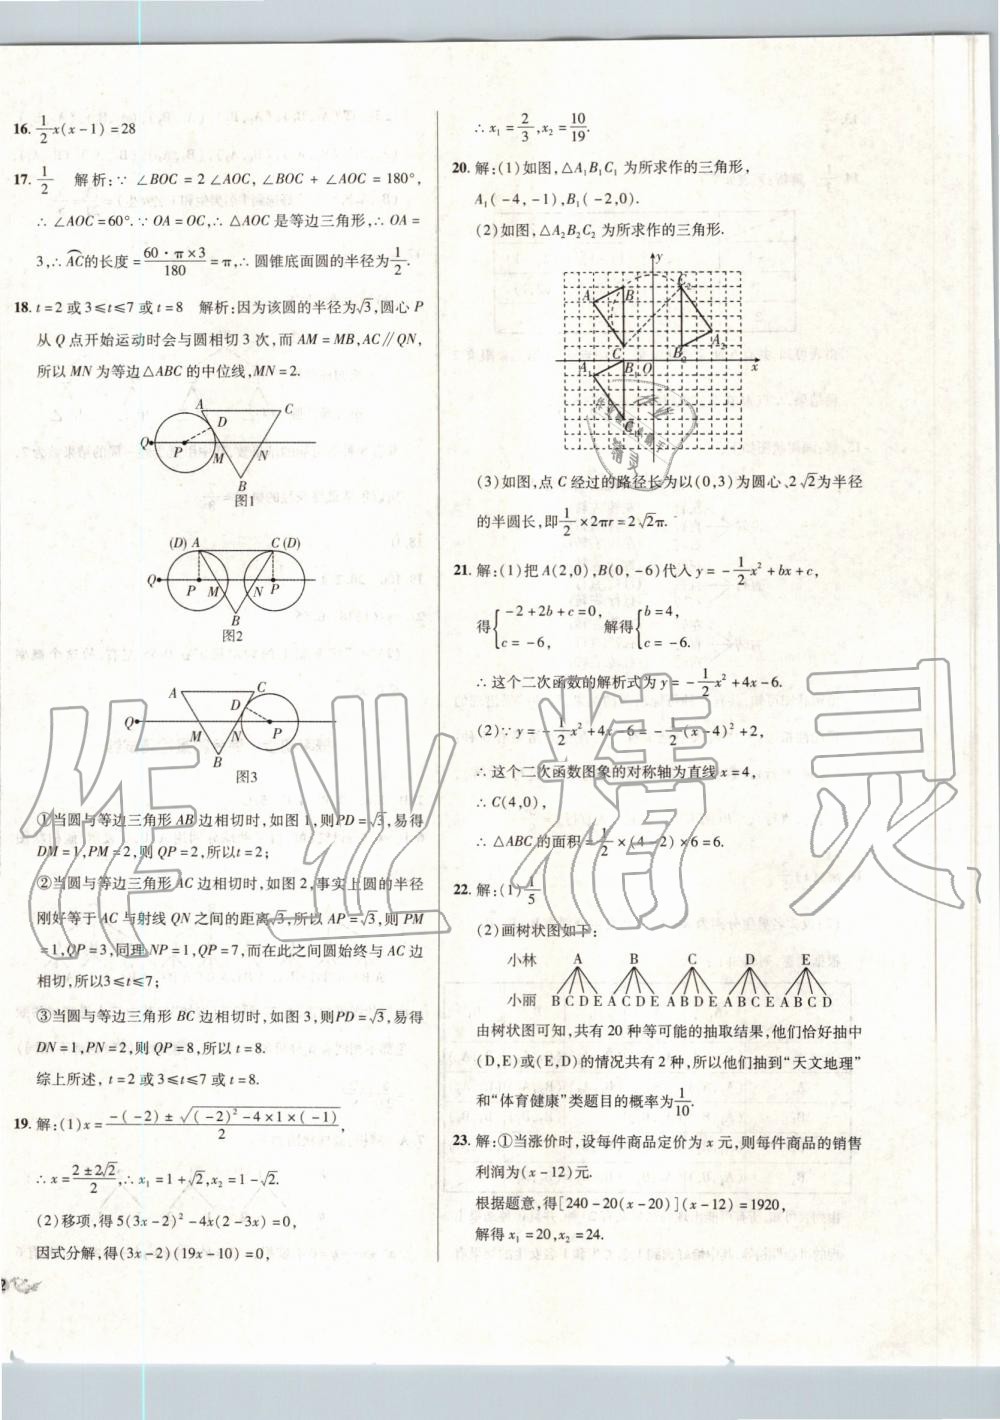 16. 1/2 x(x-1)=28
17. 1/2 解析:∵∠BOC=2∠AOC,∠BOC+∠AOC=180°,
∴∠AOC=60°.∵OA=OC,∴△AOC是等边三角形,∴OA=
3,∴AC⌢的长度=60·π×3/180=π,∴圆锥底面圆的半径为1/2.
18. t=2或3≤t≤7或t=8 解析:因为该圆的半径为√3,圆心P
从Q点开始运动时会与圆相切3次,而AM=MB,AC∥QN,
所以MN为等边△ABC的中位线,MN=2.
A C
D
Q P M N
B
图1
(D) A C (D)
Q P M N P
B
图2
A C
D
Q M N P
B
图3
①当圆与等边三角形AB边相切时,如图1,则PD=√3,易得
DM=1,PM=2,则QP=2,所以t=2;
②当圆与等边三角形AC边相切时,如图2,事实上圆的半径
刚好等于AC与射线QN之间的距离√3,所以AP=√3,则PM
=1,QP=3,同理NP=1,QP=7,而在此之间圆始终与AC边
相切,所以3≤t≤7;
③当圆与等边三角形BC边相切时,如图3,则PD=√3,易得
DN=1,PN=2,则QP=8,所以t=8.
综上所述,t=2或3≤t≤7或t=8.
19. 解:(1)x=(-(-2)±√((-2)²-4×1×(-1)))/2,
∴x=(2±2√2)/2,∴x₁=1+√2,x₂=1-√2.
(2)移项,得5(3x-2)²-4x(2-3x)=0,
因式分解,得(3x-2)(19x-10)=0,
∴x₁=2/3,x₂=10/19.
20. 解:(1)如图,△A₁B₁C₁为所求作的三角形,
A₁(-4,-1),B₁(-2,0).
(2)如图,△A₂B₂C₂为所求作的三角形.
y
A B C₂
A₂
C B₂
A₁ B₁ O x
C₁
(3)如图,点C经过的路径长为以(0,3)为圆心、2√2为半径
的半圆长,即1/2×2πr=2√2π.
21. 解:(1)把A(2,0),B(0,-6)代入y=-1/2x²+bx+c,
得{-2+2b+c=0, c=-6, 解得{b=4, c=-6.
∴这个二次函数的解析式为y=-1/2x²+4x-6.
(2)∵y=-1/2x²+4x-6=-1/2(x-4)²+2,
∴这个二次函数图象的对称轴为直线x=4,
∴C(4,0),
∴△ABC的面积=1/2×(4-2)×6=6.
22. 解:(1)1/5
(2)画树状图如下:
小林 A B C D E
小丽 B C D E A C D E A B D E A B C E A B C D
由树状图可知,共有20种等可能的抽取结果,他们恰好抽中
(D,E)或(E,D)的情况共有2种,所以他们抽到“天文地理”
和“体育健康”类题目的概率为1/10.
23. 解:①当涨价时,设每件商品定价为x元,则每件商品的销售
利润为(x-12)元.
根据题意,得[240-20(x-20)](x-12)=1920,
解得x₁=20,x₂=24.
作业精灵